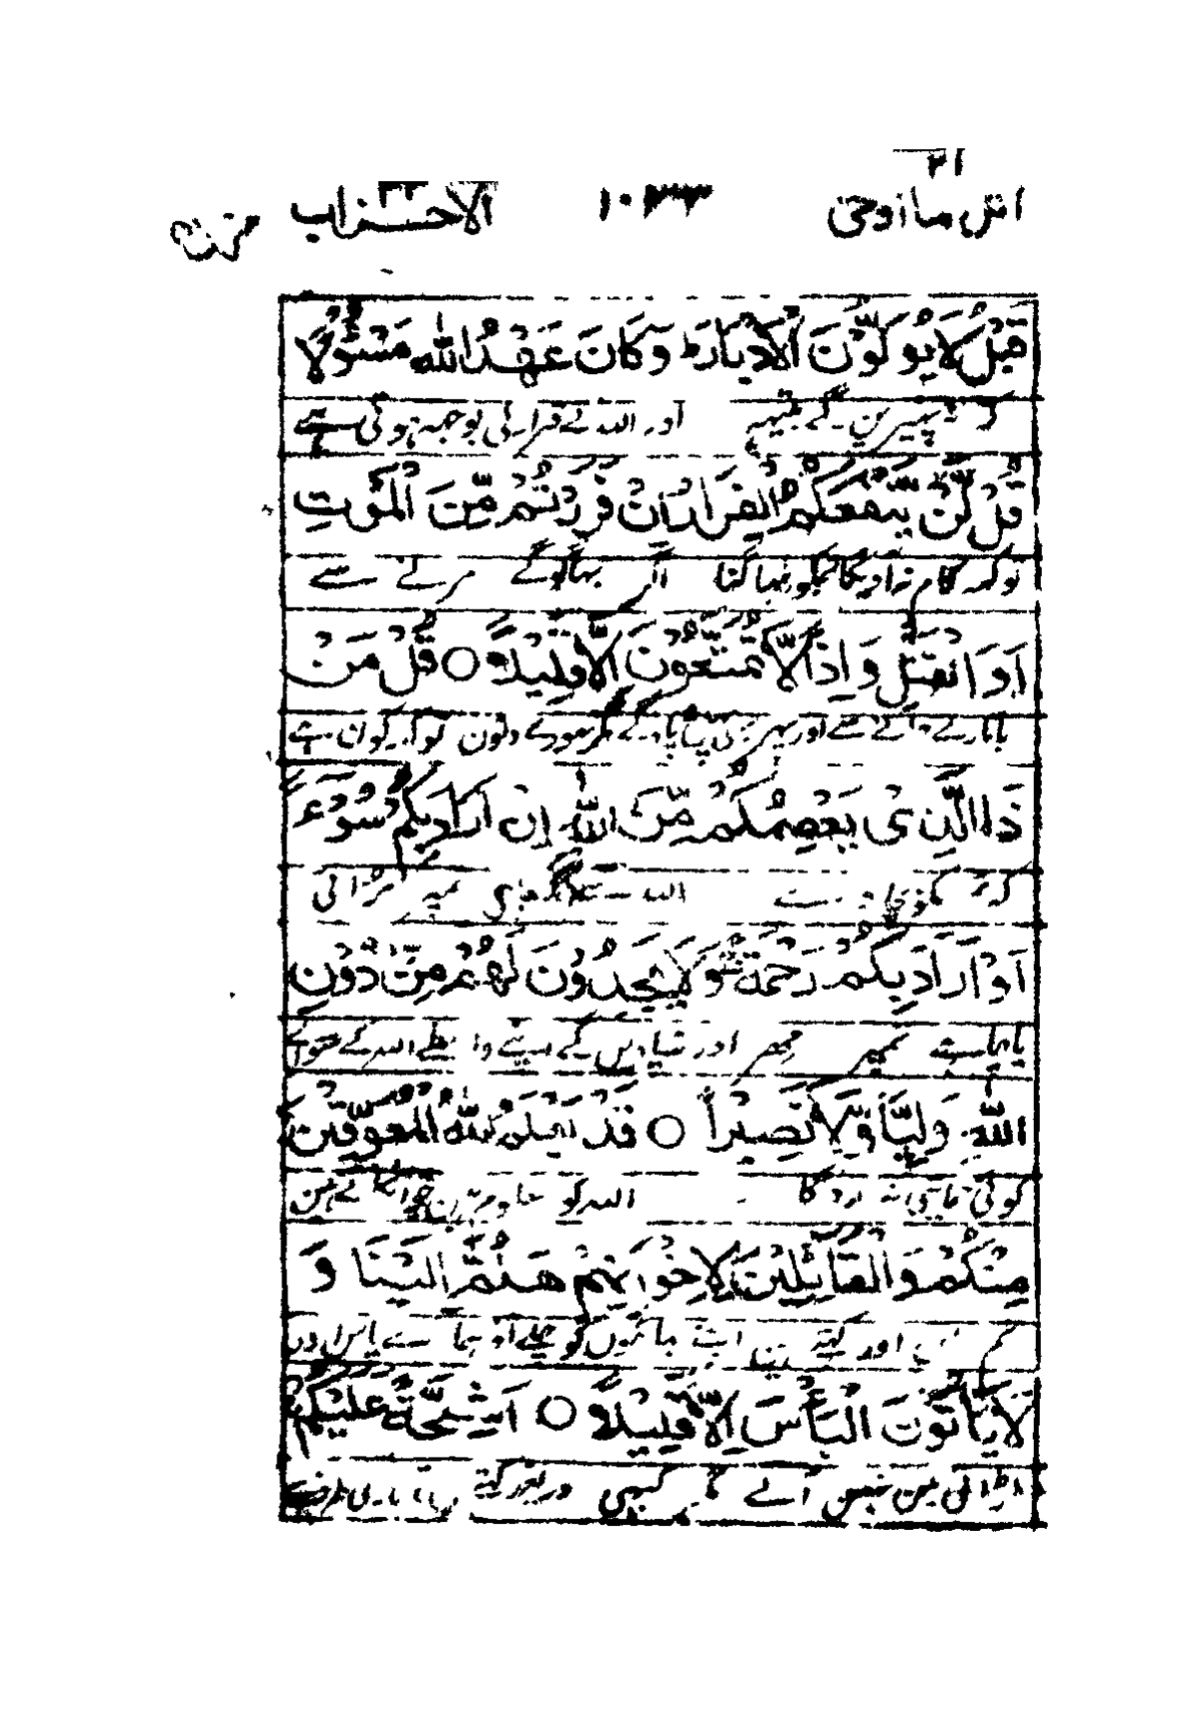 ٢١
اتل ما اوحی ١٠٣٣ الاحزاب ٣٣
قَبْلُ لَا يُوَلُّوْنَ الْاَدْبَارَ ط وَكَانَ عَهْدُ اللّٰهِ مَسْئُوْلًا
کہ نہ پھیرین گے پیٹھہ اور اللہ کے قرار کی پوچھہ ہوتی ہے
قُلْ لَّنْ يَّنْفَعَكُمُ الْفِرَارُ اِنْ فَرَرْتُمْ مِّنَ الْمَوْتِ
تو کہہ کام نہ آویگا تمکو بھاگنا اگر بھاگوگے مرنے سے
اَوِ الْقَتْلِ وَاِذًا لَّا تُمَتَّعُوْنَ اِلَّا قَلِيْلًا ○ قُلْ مَنْ
یا مارے جانے سے اور پھر بھی گے مگر تھوڑے دنون تو کہہ کون ہے
ذَا الَّذِيْ يَعْصِمُكُمْ مِّنَ اللّٰهِ اِنْ اَرَادَ بِكُمْ سُوْءً
کہ تمکو اللہ سے اگر چاہے تمپر برائی
اَوْ اَرَادَ بِكُمْ رَحْمَةً وَلَا يَجِدُوْنَ لَهُمْ مِّنْ دُوْنِ
یا چاہے تمپر مہر اور نہ پاوین گے اپنے واسطے اللہ کے سوائے
اللّٰهِ وَلِيًّا وَّلَا نَصِيْرًا ○ قَدْ يَعْلَمُ اللّٰهُ الْمُعَوِّقِيْنَ
کوئی حمایتی نہ مددگار اللہ کو معلوم ہین جو اٹکانے ہین
مِنْكُمْ وَالْقَآئِلِيْنَ لِاِخْوَانِهِمْ هَلُمَّ اِلَيْنَا وَ
تم مین اور کہتے ہین اپنے بھائیون کو چلے آؤ ہمارے پاس اور
لَا يَاْتُوْنَ الْبَاْسَ اِلَّا قَلِيْلًا ○ اَشِحَّةً عَلَيْكُمْ
لڑائی مین نہین آتے مگر کبھی دریغ رکھتے ہین تمہاری طرف سے